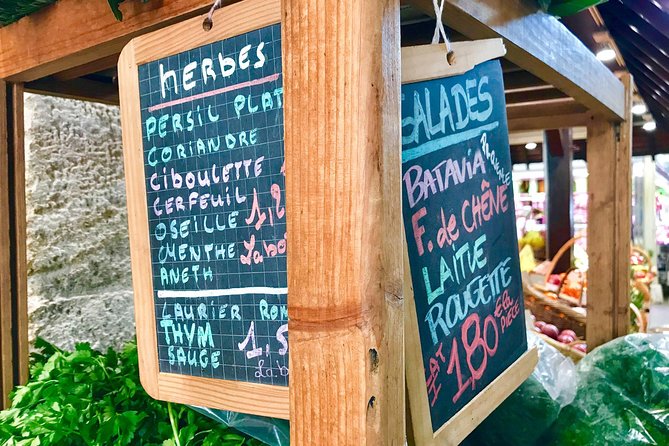 HERBES
PERSIL PLAT
CORIANDRE
CIBOULETTE
CERFEUIL
OSEILLE
MENTHE
ANETH
LAURIER ROM
THYM
SAUGE
SALADES
BATAVIA
F. de CHÊNE
LAITUE
ROUGETTE
1,80 €
PIECE